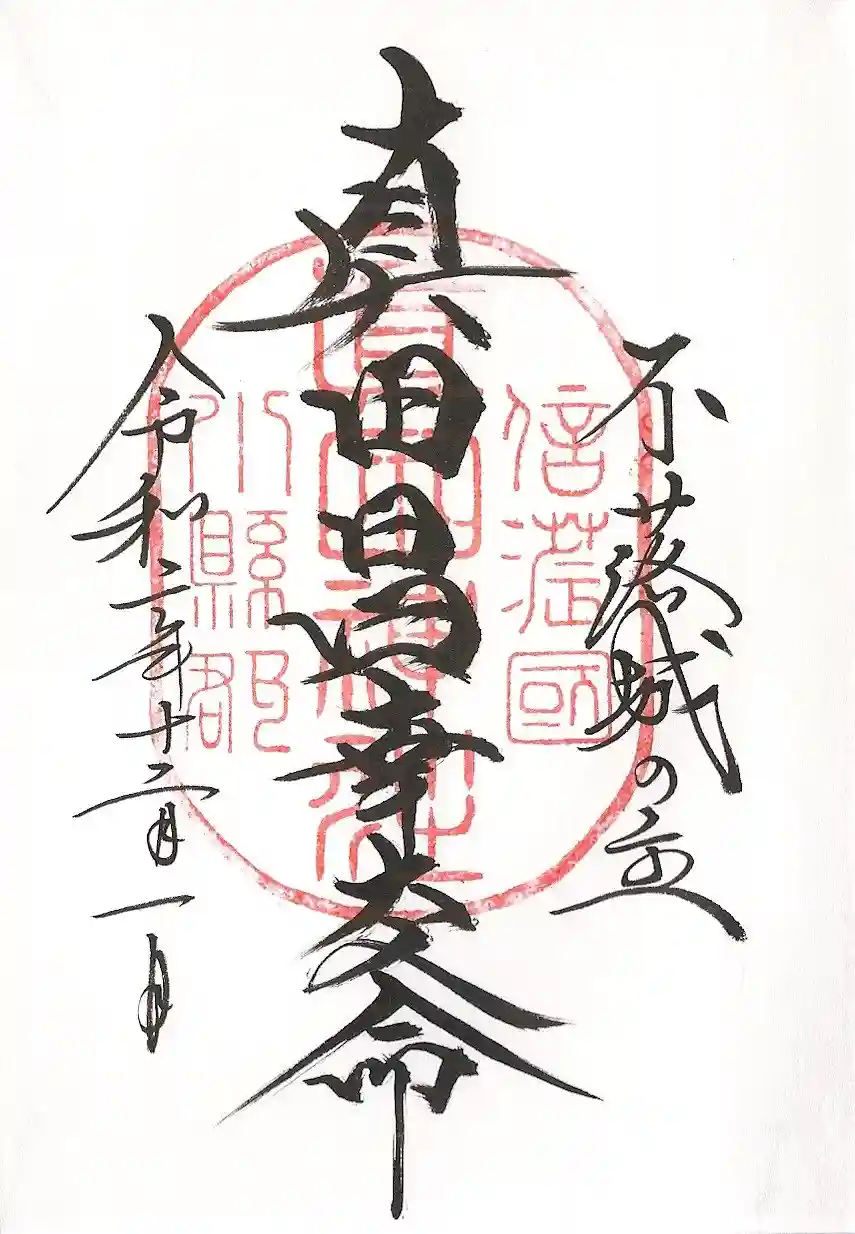 不落城の
真田昌幸命
令和二年十二月一日
信濃國
眞田神社
小縣郡